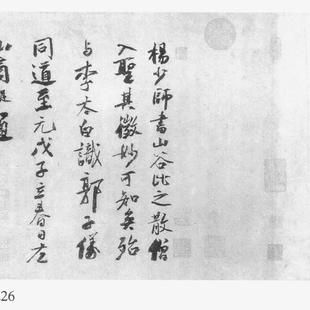 楊少師書山谷比之散僧
入聖其微妙可知矣殆
与李太白識郭子儀
同道至元戊子立春日左
山翁
26